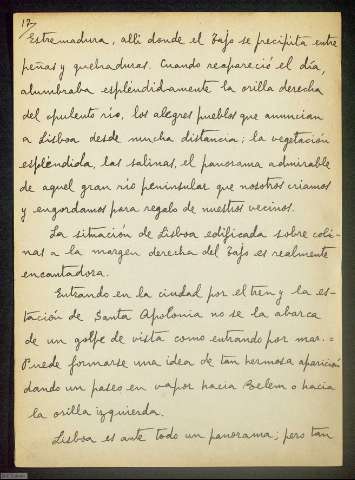 17
Estremadura, allí donde el Tajo se precipita entre
peñas y quebraduras. Cuando reapareció el día,
alumbraba espléndidamente la orilla derecha
del opulento río, los alegres pueblos que anuncian
a Lisboa desde mucha distancia; la vegetación
espléndida, las salinas, el panorama admirable
de aquel gran río peninsular que nosotros criamos
y engordamos para regalo de nuestros vecinos.
La situación de Lisboa edificada sobre coli-
nas a la margen derecha del Tajo es realmente
encantadora.
Entrando en la ciudad por el tren y la es-
tación de Santa Apolonia no se la abarca
de un golpe de vista como entrando por mar.=
Puede formarse una idea de tan hermosa aparición
dando un paseo en vapor hacia Belem o hacia
la orilla izquierda.
Lisboa es ante todo un panorama; pero tan